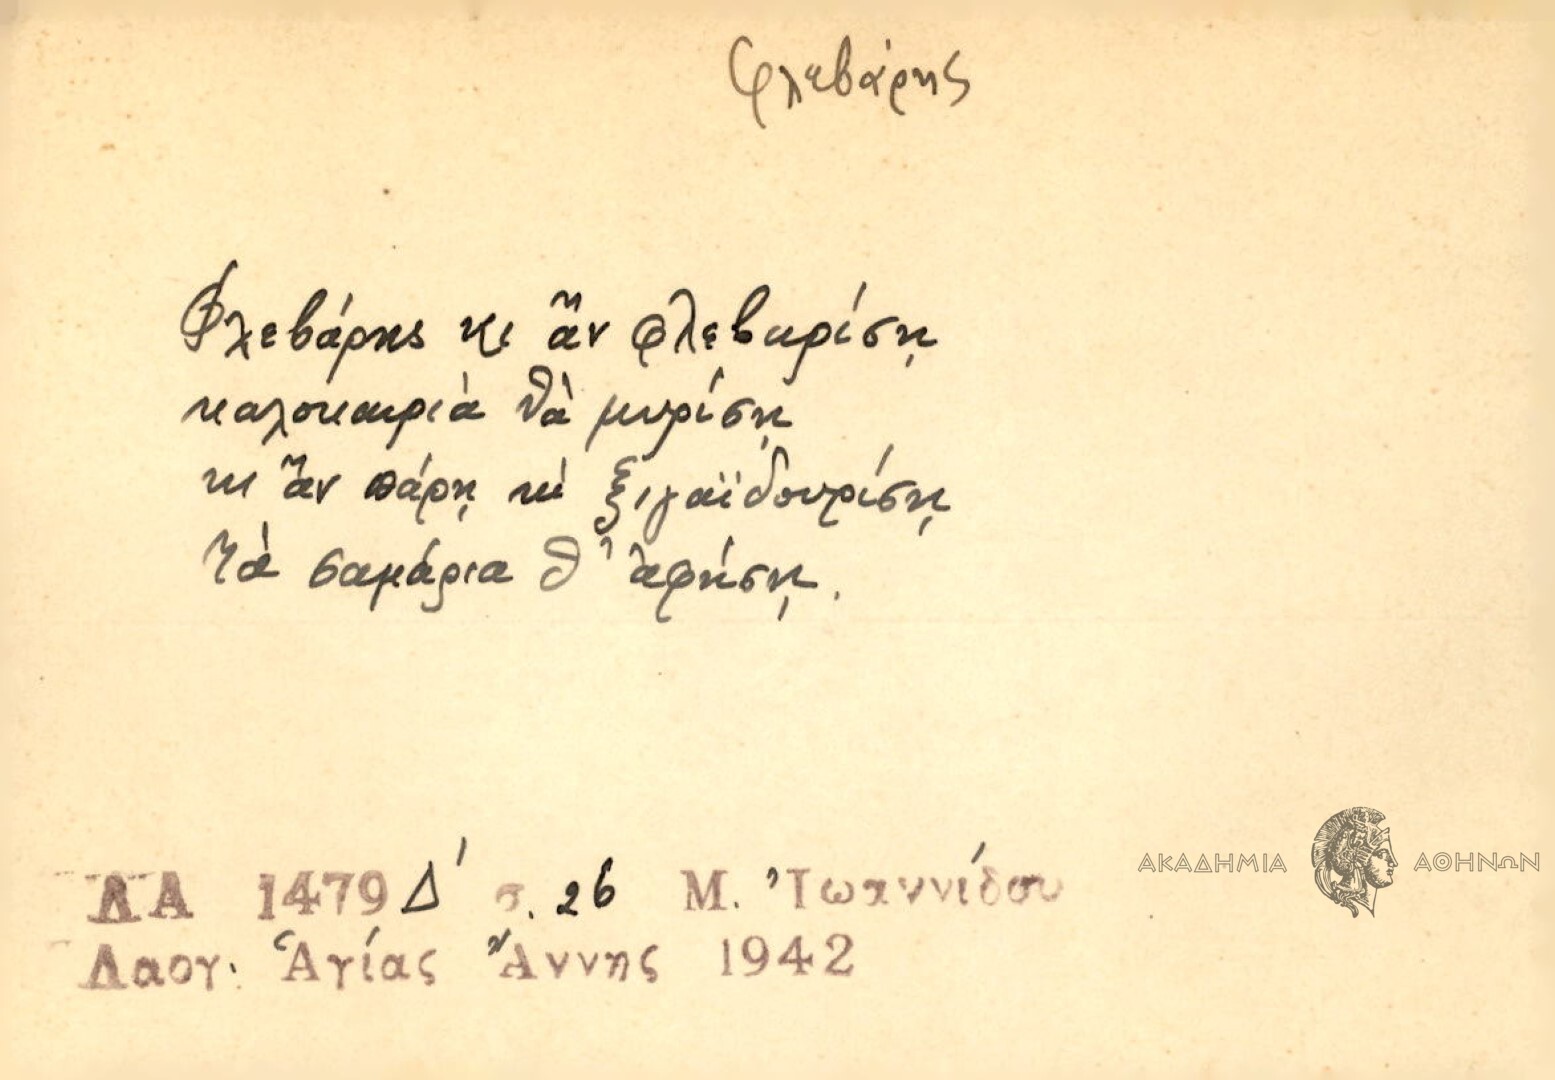 Φλεβάρης
Φλεβάρης κι ἂν φλεβαρίση
καλοκαιριὰ θὰ μυρίση
κι ἂν πάρη κὶ ξιγαϊδουρίση
τὰ σαμάρια θ' ἀφήση.
ΑΚΑΔΗΜΙΑ ΑΘΗΝΩΝ
ΛΑ 1479 Δ' σ. 26 Μ. Ἰωαννίδου
Λαογ. Ἁγίας Ἄννης 1942